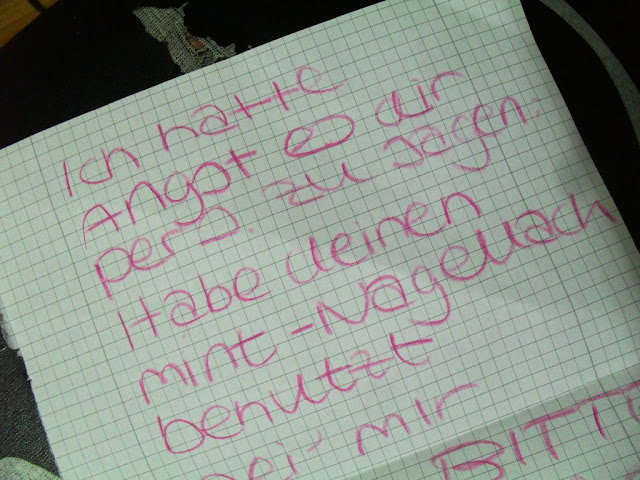 Ich hatte
Angst es dir
pers. zu sagen.
Habe deinen
mint-Nagellack
benutzt
bei mir
BITTE